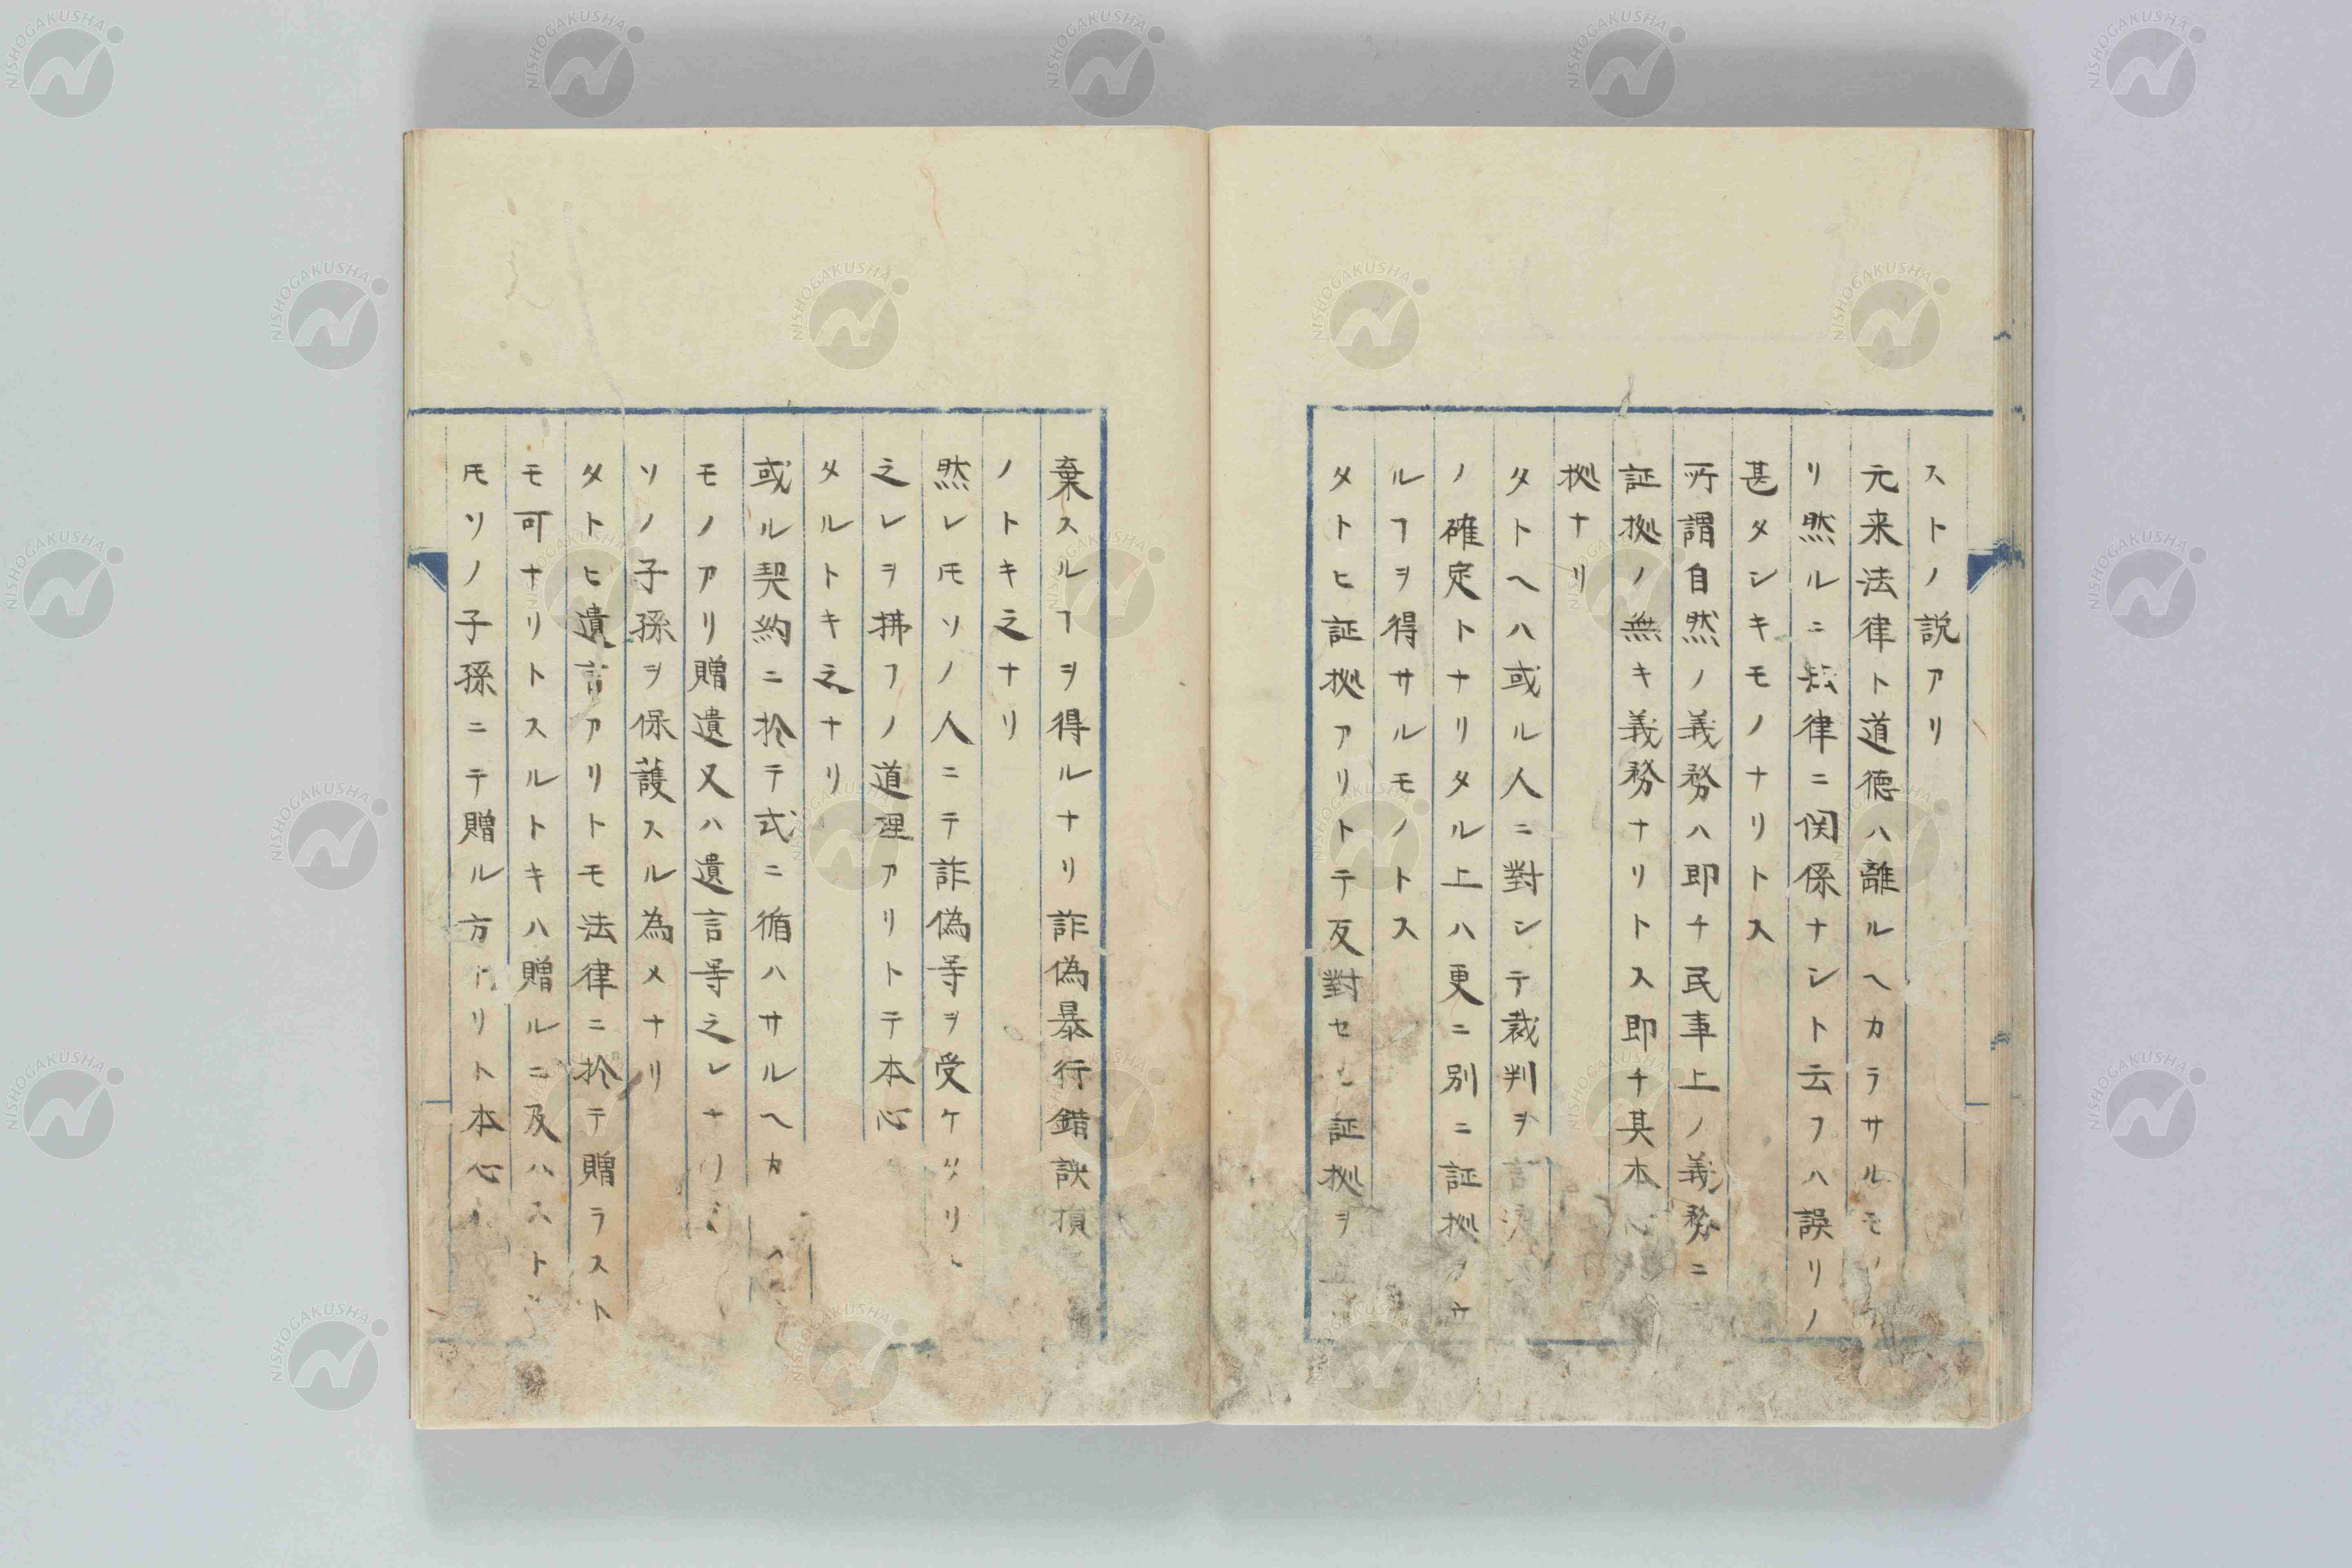 ストノ説アリ
元来法律ト道徳ハ離ルヘカラサルモノ
リ然ルニ法律ニ関係ナシト云フハ誤リノ
甚タシキモノナリトス
所謂自然ノ義務ハ即チ民事上ノ義務ニ
証拠ノ無キ義務ナリトス即チ其本心
拠ナリ
タトヘハ或ル人ニ對シテ裁判ヲ言渡
ノ確定トナリタル上ハ更ニ別ニ証拠
ルヿヲ得サルモノトス
タトヒ証拠アリトテ反對セ 証拠ヲ
棄スルヿヲ得ルナリ詐偽暴行錯誤損
ノトキ之ナリ
然レ𪜈ソノ人ニテ詐偽等ヲ受ケタリ
之レヲ拂フノ道理アリトテ本心
タルトキ之ナリ
或ル契約ニ於テ式ニ循ハサルヘカ
モノアリ贈遺又ハ遺言等之レナリ
ソノ子孫ヲ保護スル為メナリ
タトヒ遺言アリトモ法律ニ於テ贈ラスト
モ可ナリトスルトキハ贈ルニ及ハスト
𪜈ソノ子孫ニテ贈ル方 リト本心
NISHOGAKUSHA